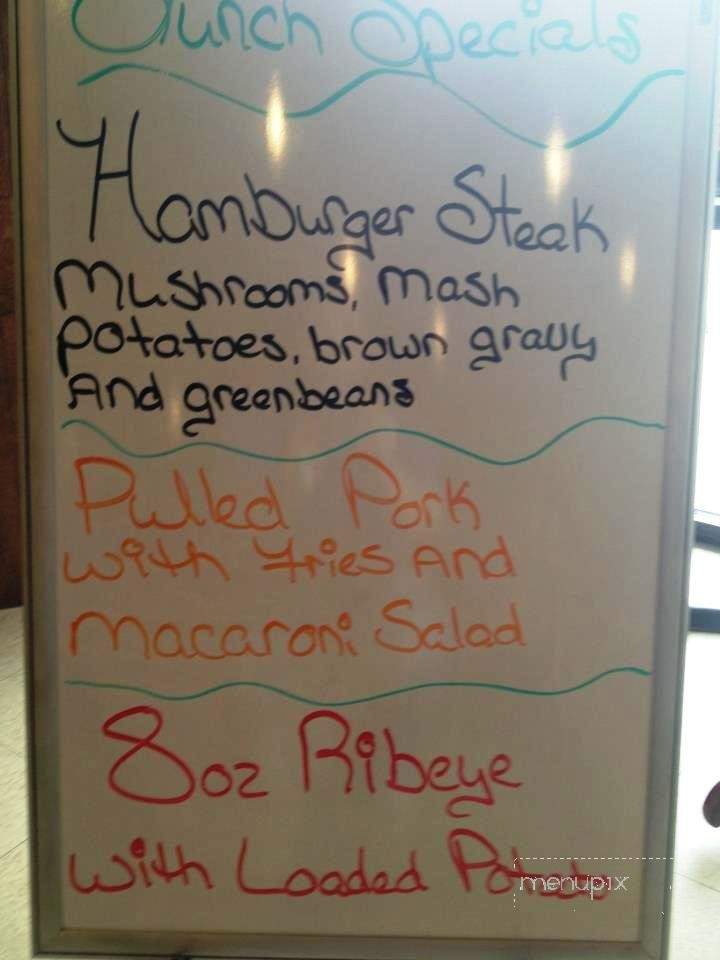 Lunch Specials
Hamburger Steak
Mushrooms, Mash
Potatoes, brown gravy
And greenbeans
Pulled Pork
with Fries And
Macaroni Salad
8oz Ribeye
with Loaded Potato
menupix